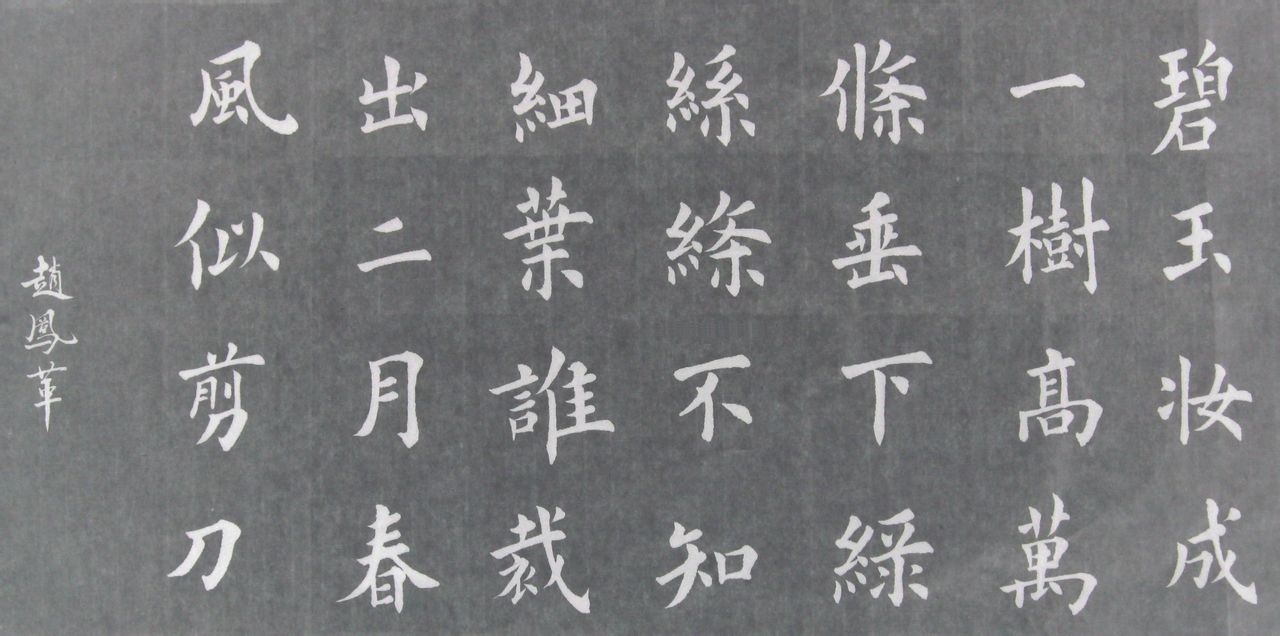 碧玉妆成
一樹髙萬
條垂下綠
絲絛不知
細葉誰裁
出二月春
風似剪刀
趙鳳革